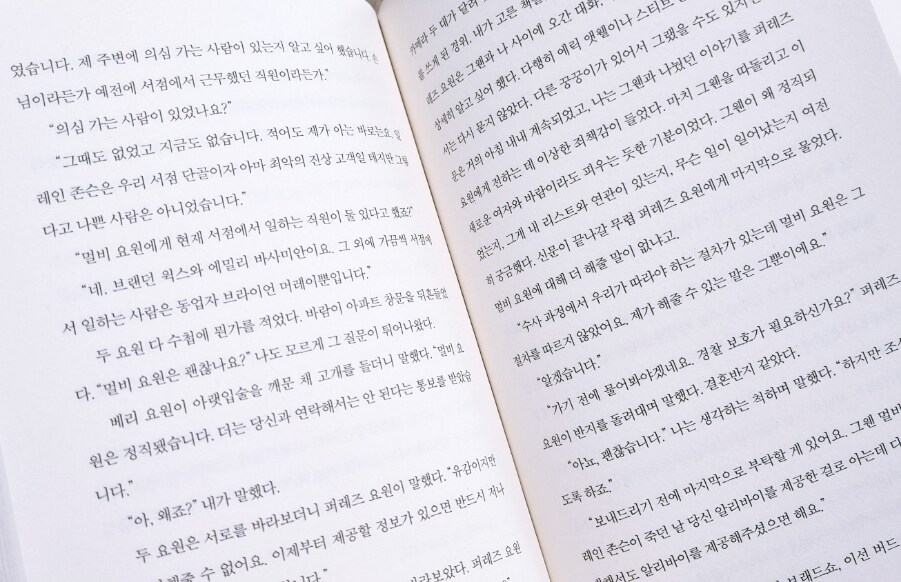 였습니다. 제 주변에 의심 가는 사람이 있는지 알고 싶어 했습니다. 손
님이라든가 예전에 서점에서 근무했던 직원이라든가.”
“의심 가는 사람이 있었나요?”
“그때도 없었고 지금도 없습니다. 적어도 제가 아는 바로는요. 일
레인 존슨은 우리 서점 단골이자 아마 최악의 진상 고객일 테지만 그렇
다고 나쁜 사람은 아니었습니다.”
“멀비 요원에게 현재 서점에서 일하는 직원이 둘 있다고 했죠?”
“네. 브랜던 윅스와 에밀리 바사미안이요. 그 외에 가끔씩 서점에
서 일하는 사람은 동업자 브라이언 머레이뿐입니다.”
두 요원 다 수첩에 뭔가를 적었다. 바람이 아파트 창문을 뒤흔들었
다. “멀비 요원은 괜찮나요?” 나도 모르게 그 질문이 튀어나왔다.
베리 요원이 아랫입술을 깨문 채 고개를 들더니 말했다. “멀비 요
원은 정직됐습니다. 더는 당신과 연락해서는 안 된다는 통보를 받았습
니다.”
“아, 왜죠?” 내가 말했다.
두 요원은 서로를 바라보더니 퍼레즈 요원이 말했다. “유감이지만
해줄 수 없어요. 이제부터 제공할 정보가 있으면 반드시 저나
니다.”
바라보았다. 퍼레즈 요원
카메라 두 대가 달려
를 쓰게 된 경위, 내가 고른 책들
레즈 요원은 그웬과 나 사이에 오간 대화,
상세히 알고 싶어 했다. 다행히 에릭 앳웰이나 스티브
서는 다시 묻지 않았다. 다른 꿍꿍이가 있어서 그랬을 수도 있지
문은 거의 아침 내내 계속되었고, 나는 그웬과 나눴던 이야기를 퍼레즈
요원에게 전하는 데 이상한 죄책감이 들었다. 마치 그웬을 따돌리고 이
새로운 여자와 바람이라도 피우는 듯한 기분이었다. 그웬이 왜 정직되
었는지, 그게 내 리스트와 연관이 있는지, 무슨 일이 일어났는지 여전
히 궁금했다. 신문이 끝나갈 무렵 퍼레즈 요원에게 마지막으로 물었다.
멀비 요원에 대해 더 해줄 말이 없냐고.
“수사 과정에서 우리가 따라야 하는 절차가 있는데 멀비 요원은 그
절차를 따르지 않았어요. 제가 해줄 수 있는 말은 그뿐이에요.”
“알겠습니다.”
“가기 전에 물어봐야겠네요. 경찰 보호가 필요하신가요?” 퍼레즈
요원이 반지를 돌려대며 말했다. 결혼반지 같았다.
“아뇨, 괜찮습니다.” 나는 생각하는 척하며 말했다. “하지만 조심
도록 하죠.”
“보내드리기 전에 마지막으로 부탁할 게 있어요. 그웬 멀비
레인 존슨이 죽던 날 당신 알리바이를 제공한 걸로 아는데 다
해서도 알리바이를 제공해주셨으면 해요.”
브래드쇼, 이선 버드